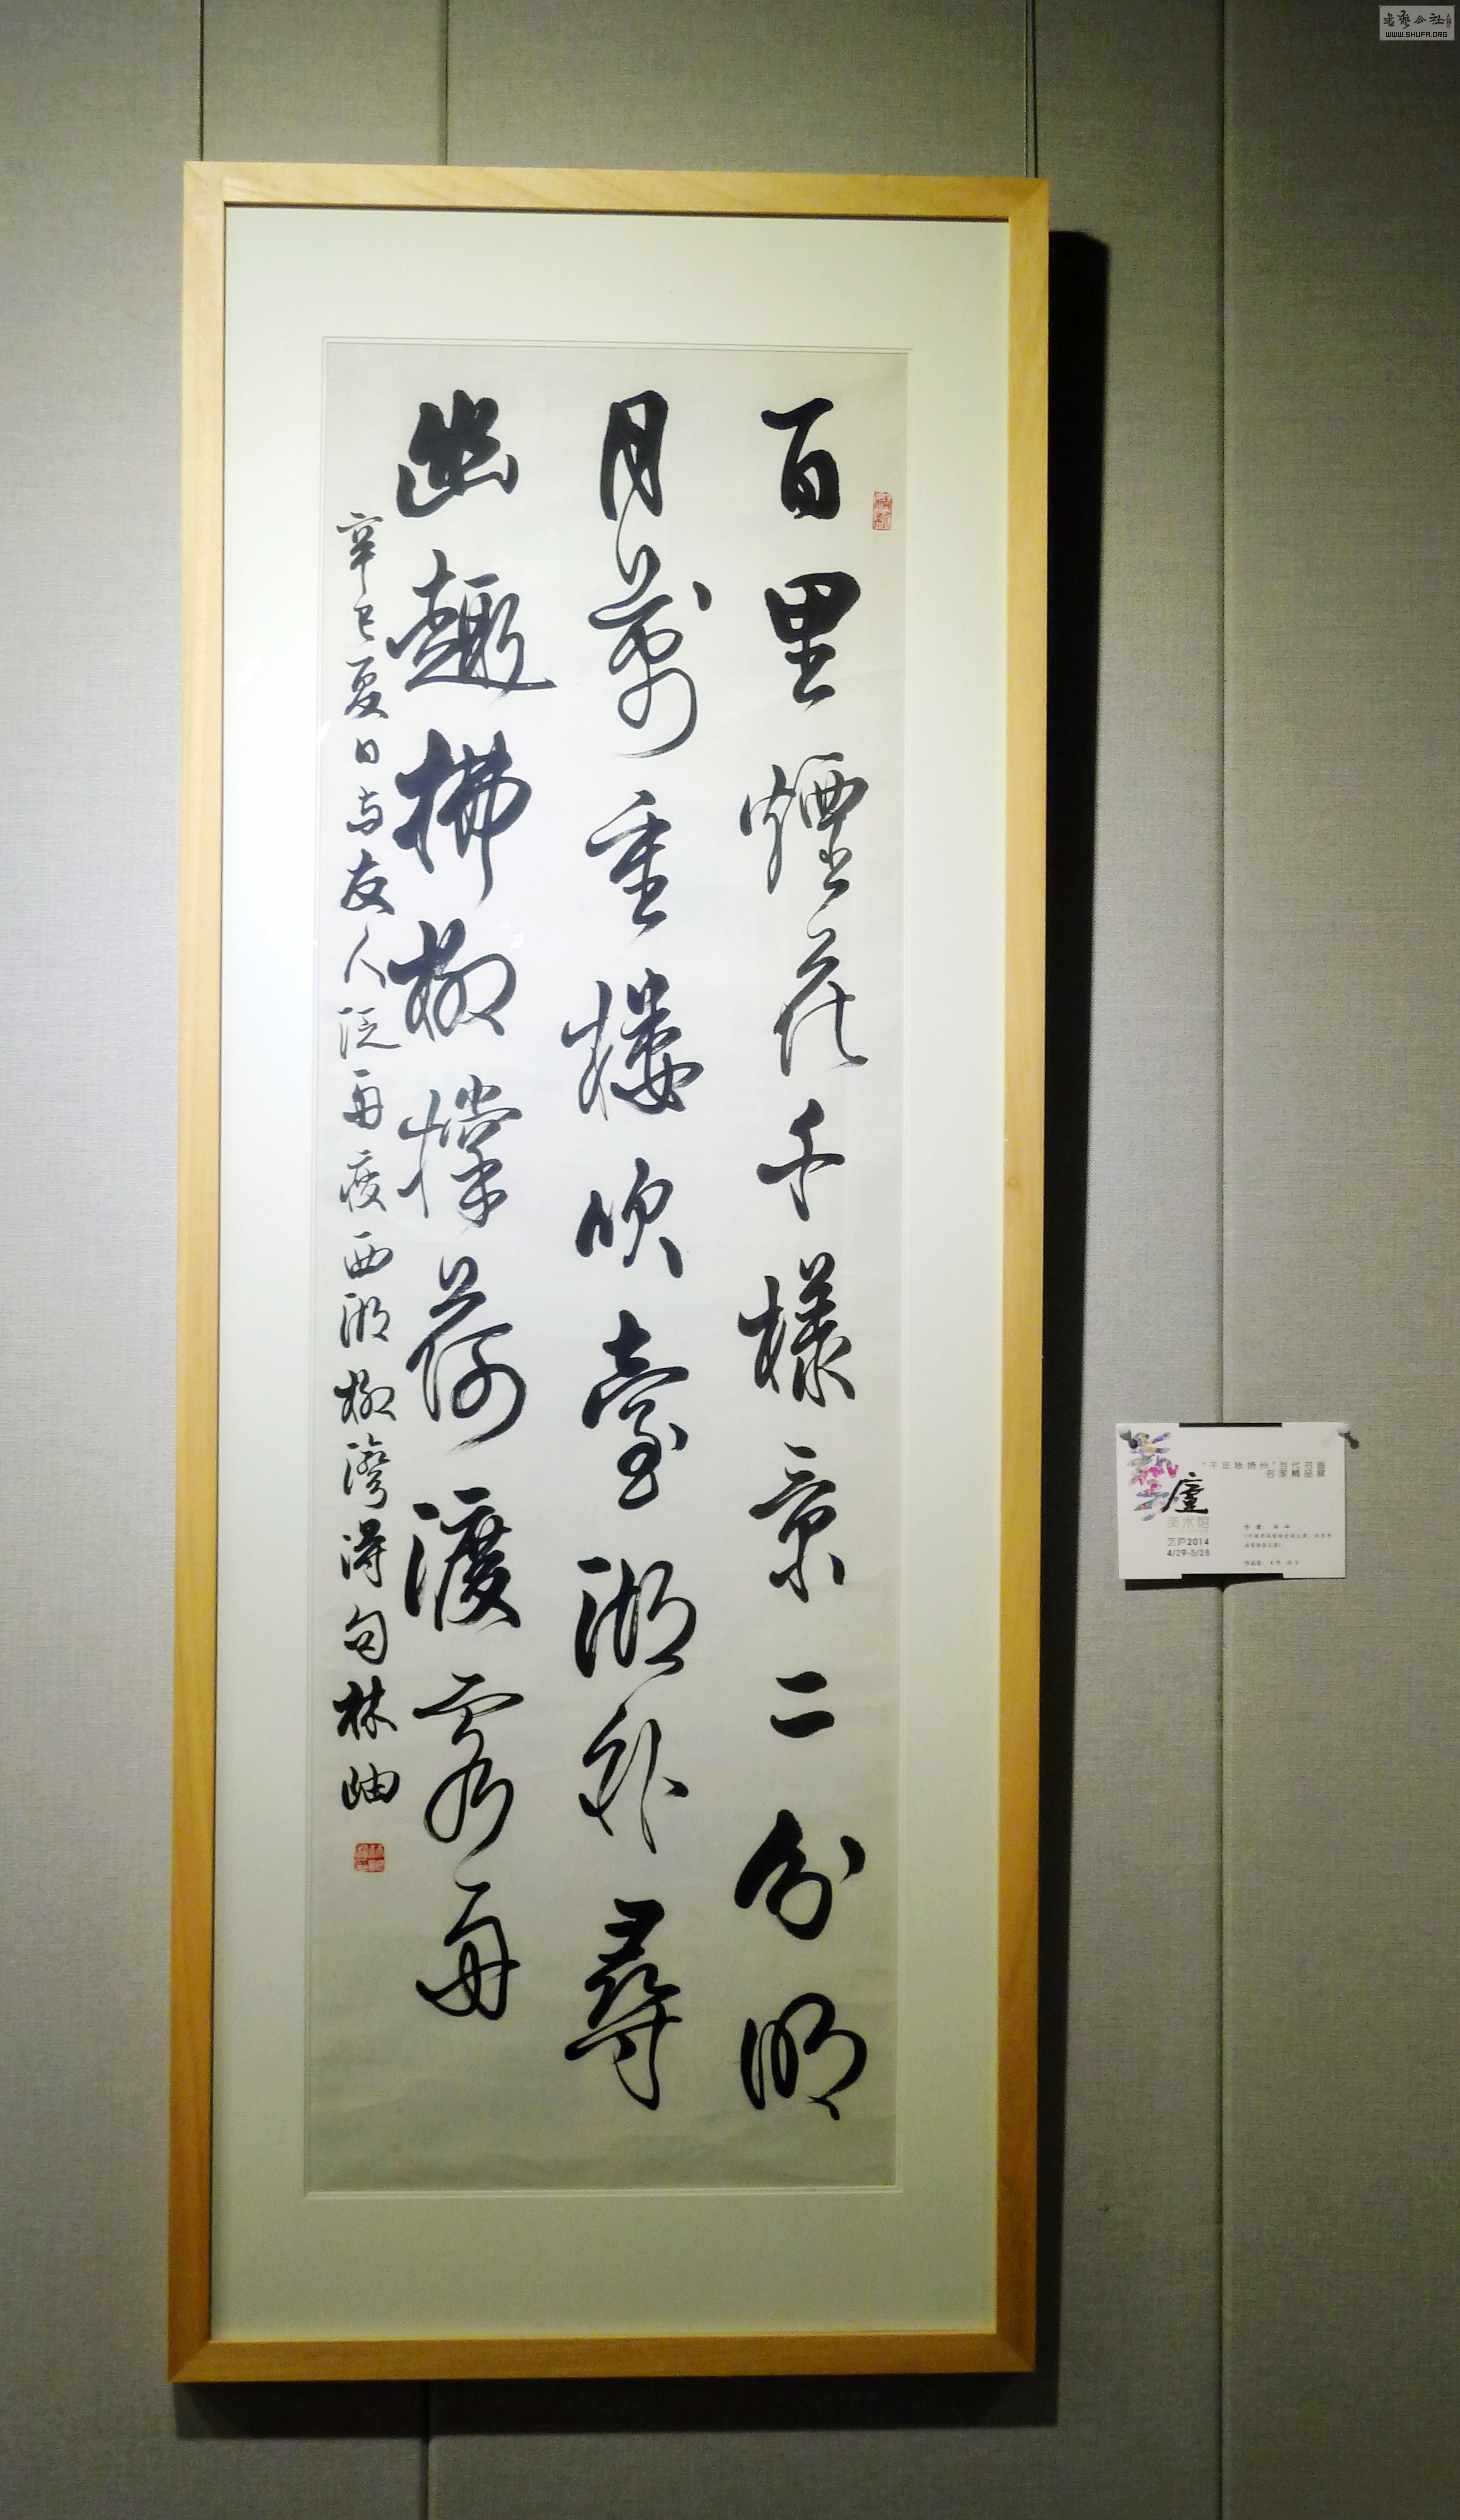 百里煙花千樣景二分明
月萬重樓吹臺湖外尋
幽趣拂柳擛荷渡霧舟
辛巳夏日与友人泛舟瘦西湖柳灣得句林岫
廬
美术馆
艺庐2014
4/29-5/28
"千年咏扬州"当代书画
名家精品展
WWW.SHUFA.ORG